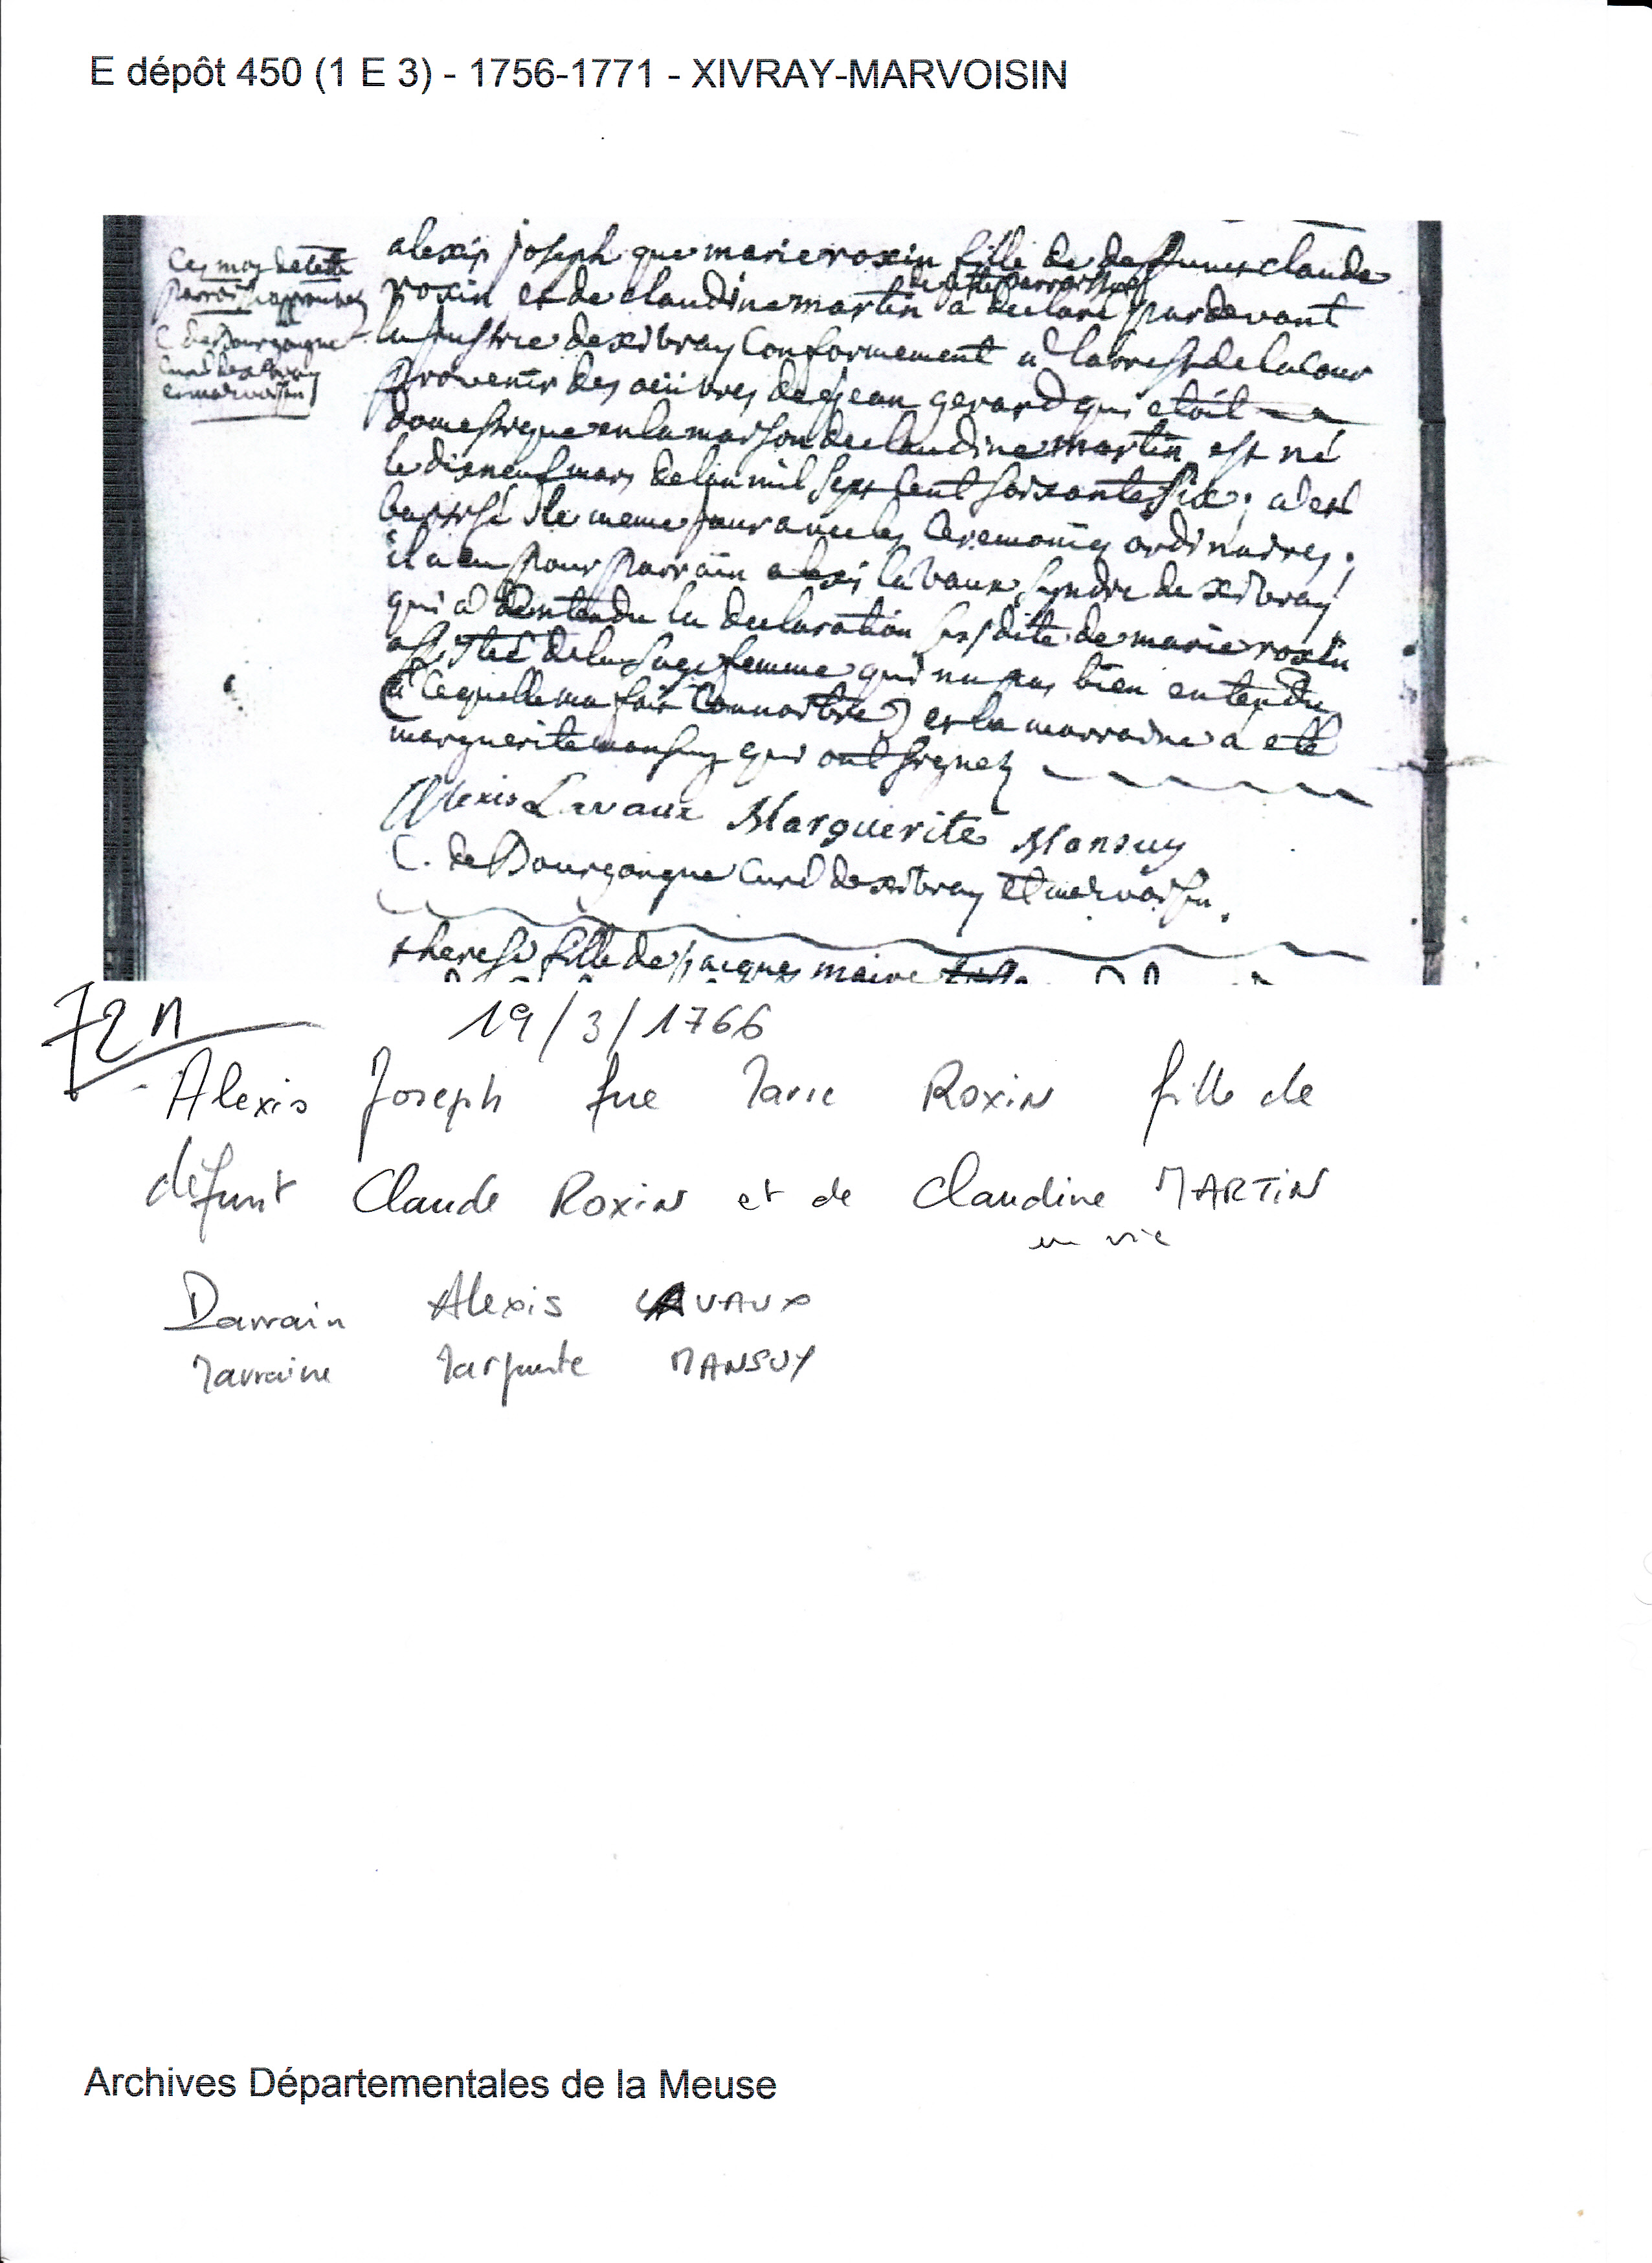 E dépôt 450 (1 E 3) - 1756-1771 - XIVRAY-MARVOISIN
ces mots de cette
parroisse approuvez
C. de Bourgongne
curé de xivray
et marvoisin
alexis joseph que marie roxin fille de defunct claude
de cette parroisse
roxin et de claudine martin a declaré pardevant
la justice de xivray conformement a l'arrest de la cour
provenir des oeüvres de jean gerard qui etoit
domestique en la maison de claudine martin est né
le dixneuf mars de l'an mil sept cent soixante six; a été
baptisé le meme jour avec les ceremonies ordinaires;
il a eu pour parrain alexis lavaux syndic de xivray
qui a entendu la declaration susdite de marie roxin
assisté de la sage femme qui n'a pas bien entendu
(a ce quelle m'a fait connoitre) et la marraine a eté
marguerite mansuy qui ont signez
Alexis Lavaux Marguerite Mansuy
C. de Bourgongne curé de xivray et marvoisin.
therese fille de jacques maire
72 n
19/3/1766
- Alexis Joseph que Marie ROXIN fille de
défunt Claude ROXIN et de Claudine MARTIN
en vie
Parrain Alexis LAVAUX
Marraine Marguerite MANSUY
Archives Départementales de la Meuse